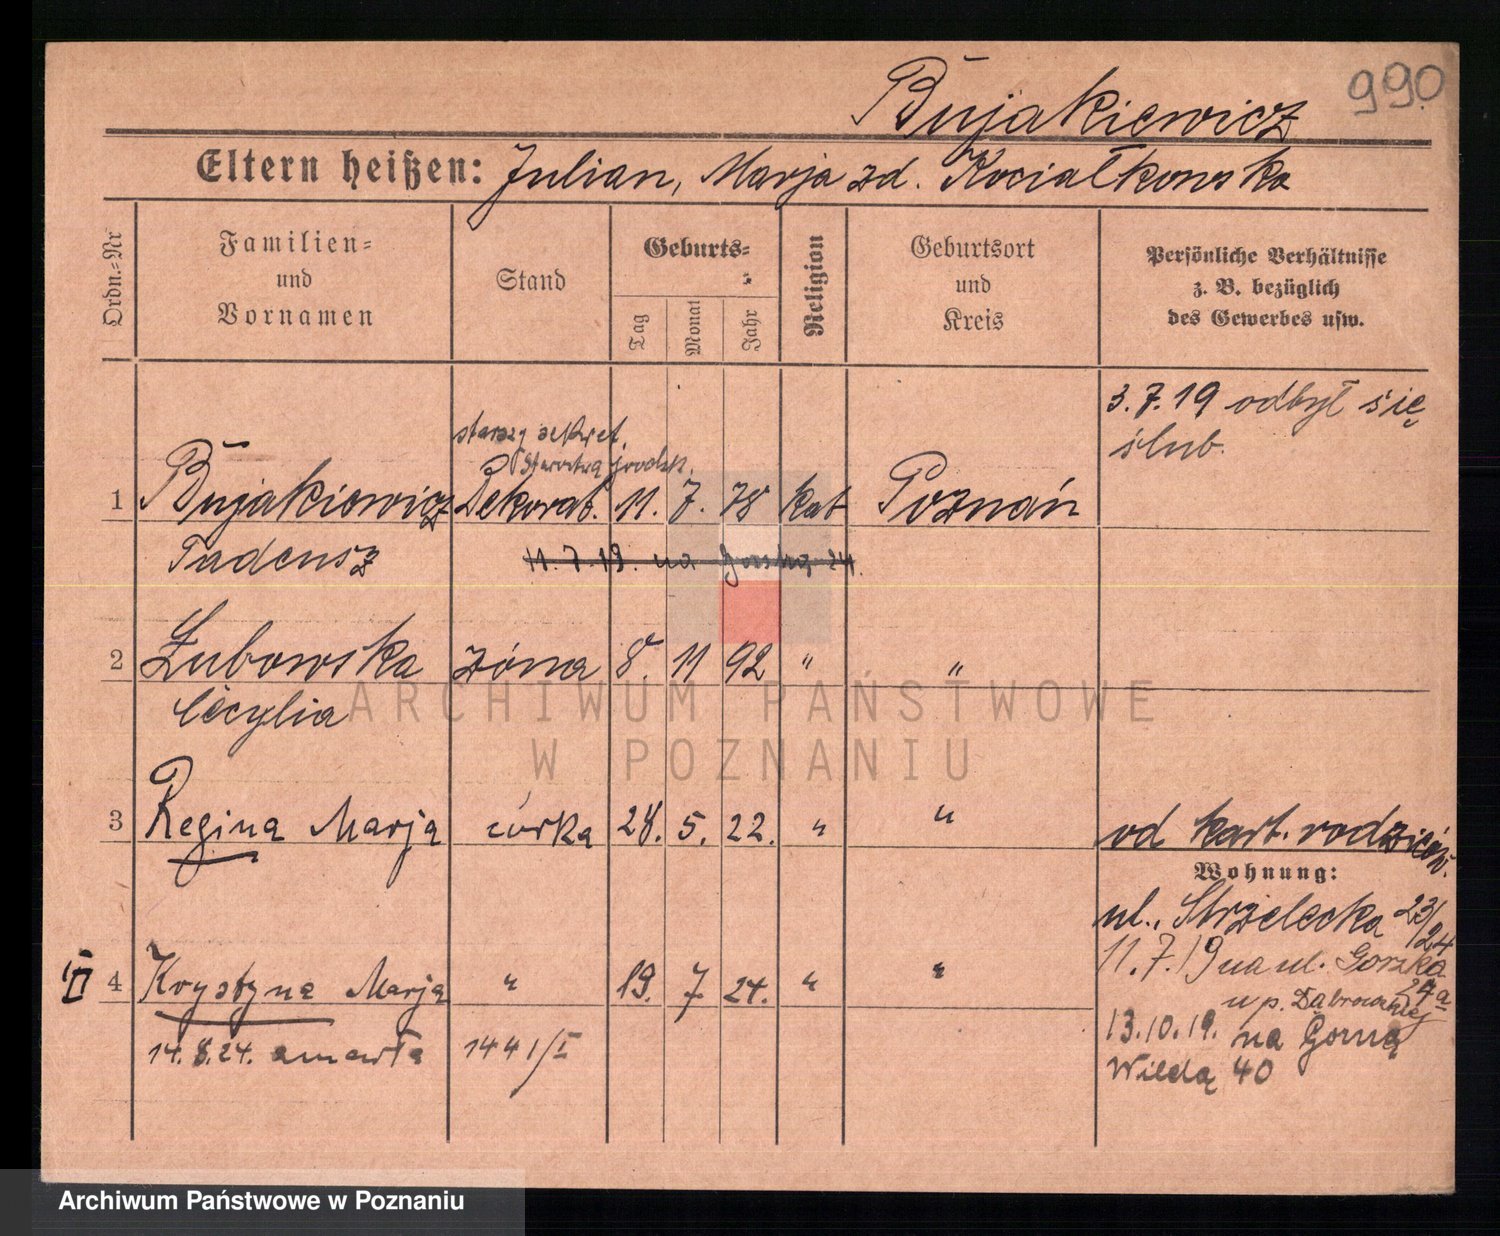 990
Bujakiewicz
Eltern heißen: Julian, Marja zd. Kociałkowska
Ordn.-Nr
Familien-
und
Vornamen
Stand
Geburts-
Tag
Monat
Jahr
Religion
Geburtsort
und
Kreis
Persönliche Verhältnisse
z. B. bezüglich
des Gewerbes usw.
3. 7. 19 odbył się
ślub.
starszy sekret.
Starostwa grodzk.
1 Bujakiewicz Dekorat. 11. 7. 78 kat Poznań
Tadeusz
11. 7. 19. na Gorską 24.
2 Żubowska żona 8. 11 92 " "
Cecylia
3 Regina Marja córka 28. 5. 22. " "
od kart. rodziców.
Wohnung:
ul. Strzelecka 23/24
11. 7. 19 na ul. Gorska
24a
u p. Dąbrowskiej
II 4 Krystyna Marja " 19. 7 24. " "
14. 8. 24. zmarła 1441/I
13. 10. 19. na Gorną
Wildą 40
ARCHIWUM PAŃSTWOWE
W POZNANIU
Archiwum Państwowe w Poznaniu